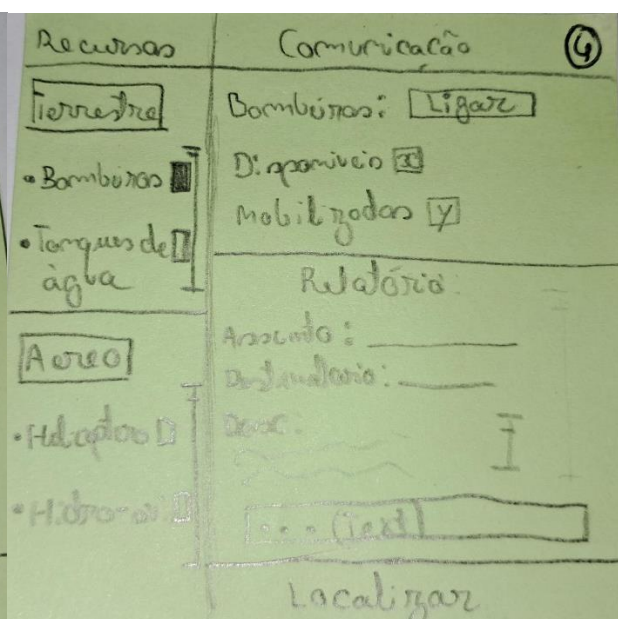 Recursos
Terrestre
• Bombeiros
• Tanques de
água
Aereo
• Helicoptero
• Hidro-avi
Comunicação
4
Bombeiros: Ligar
Disponiveis x
Mobilizados y
Relatório:
Assunto:
Destinatario:
Desc.
... (Text)
Localizar